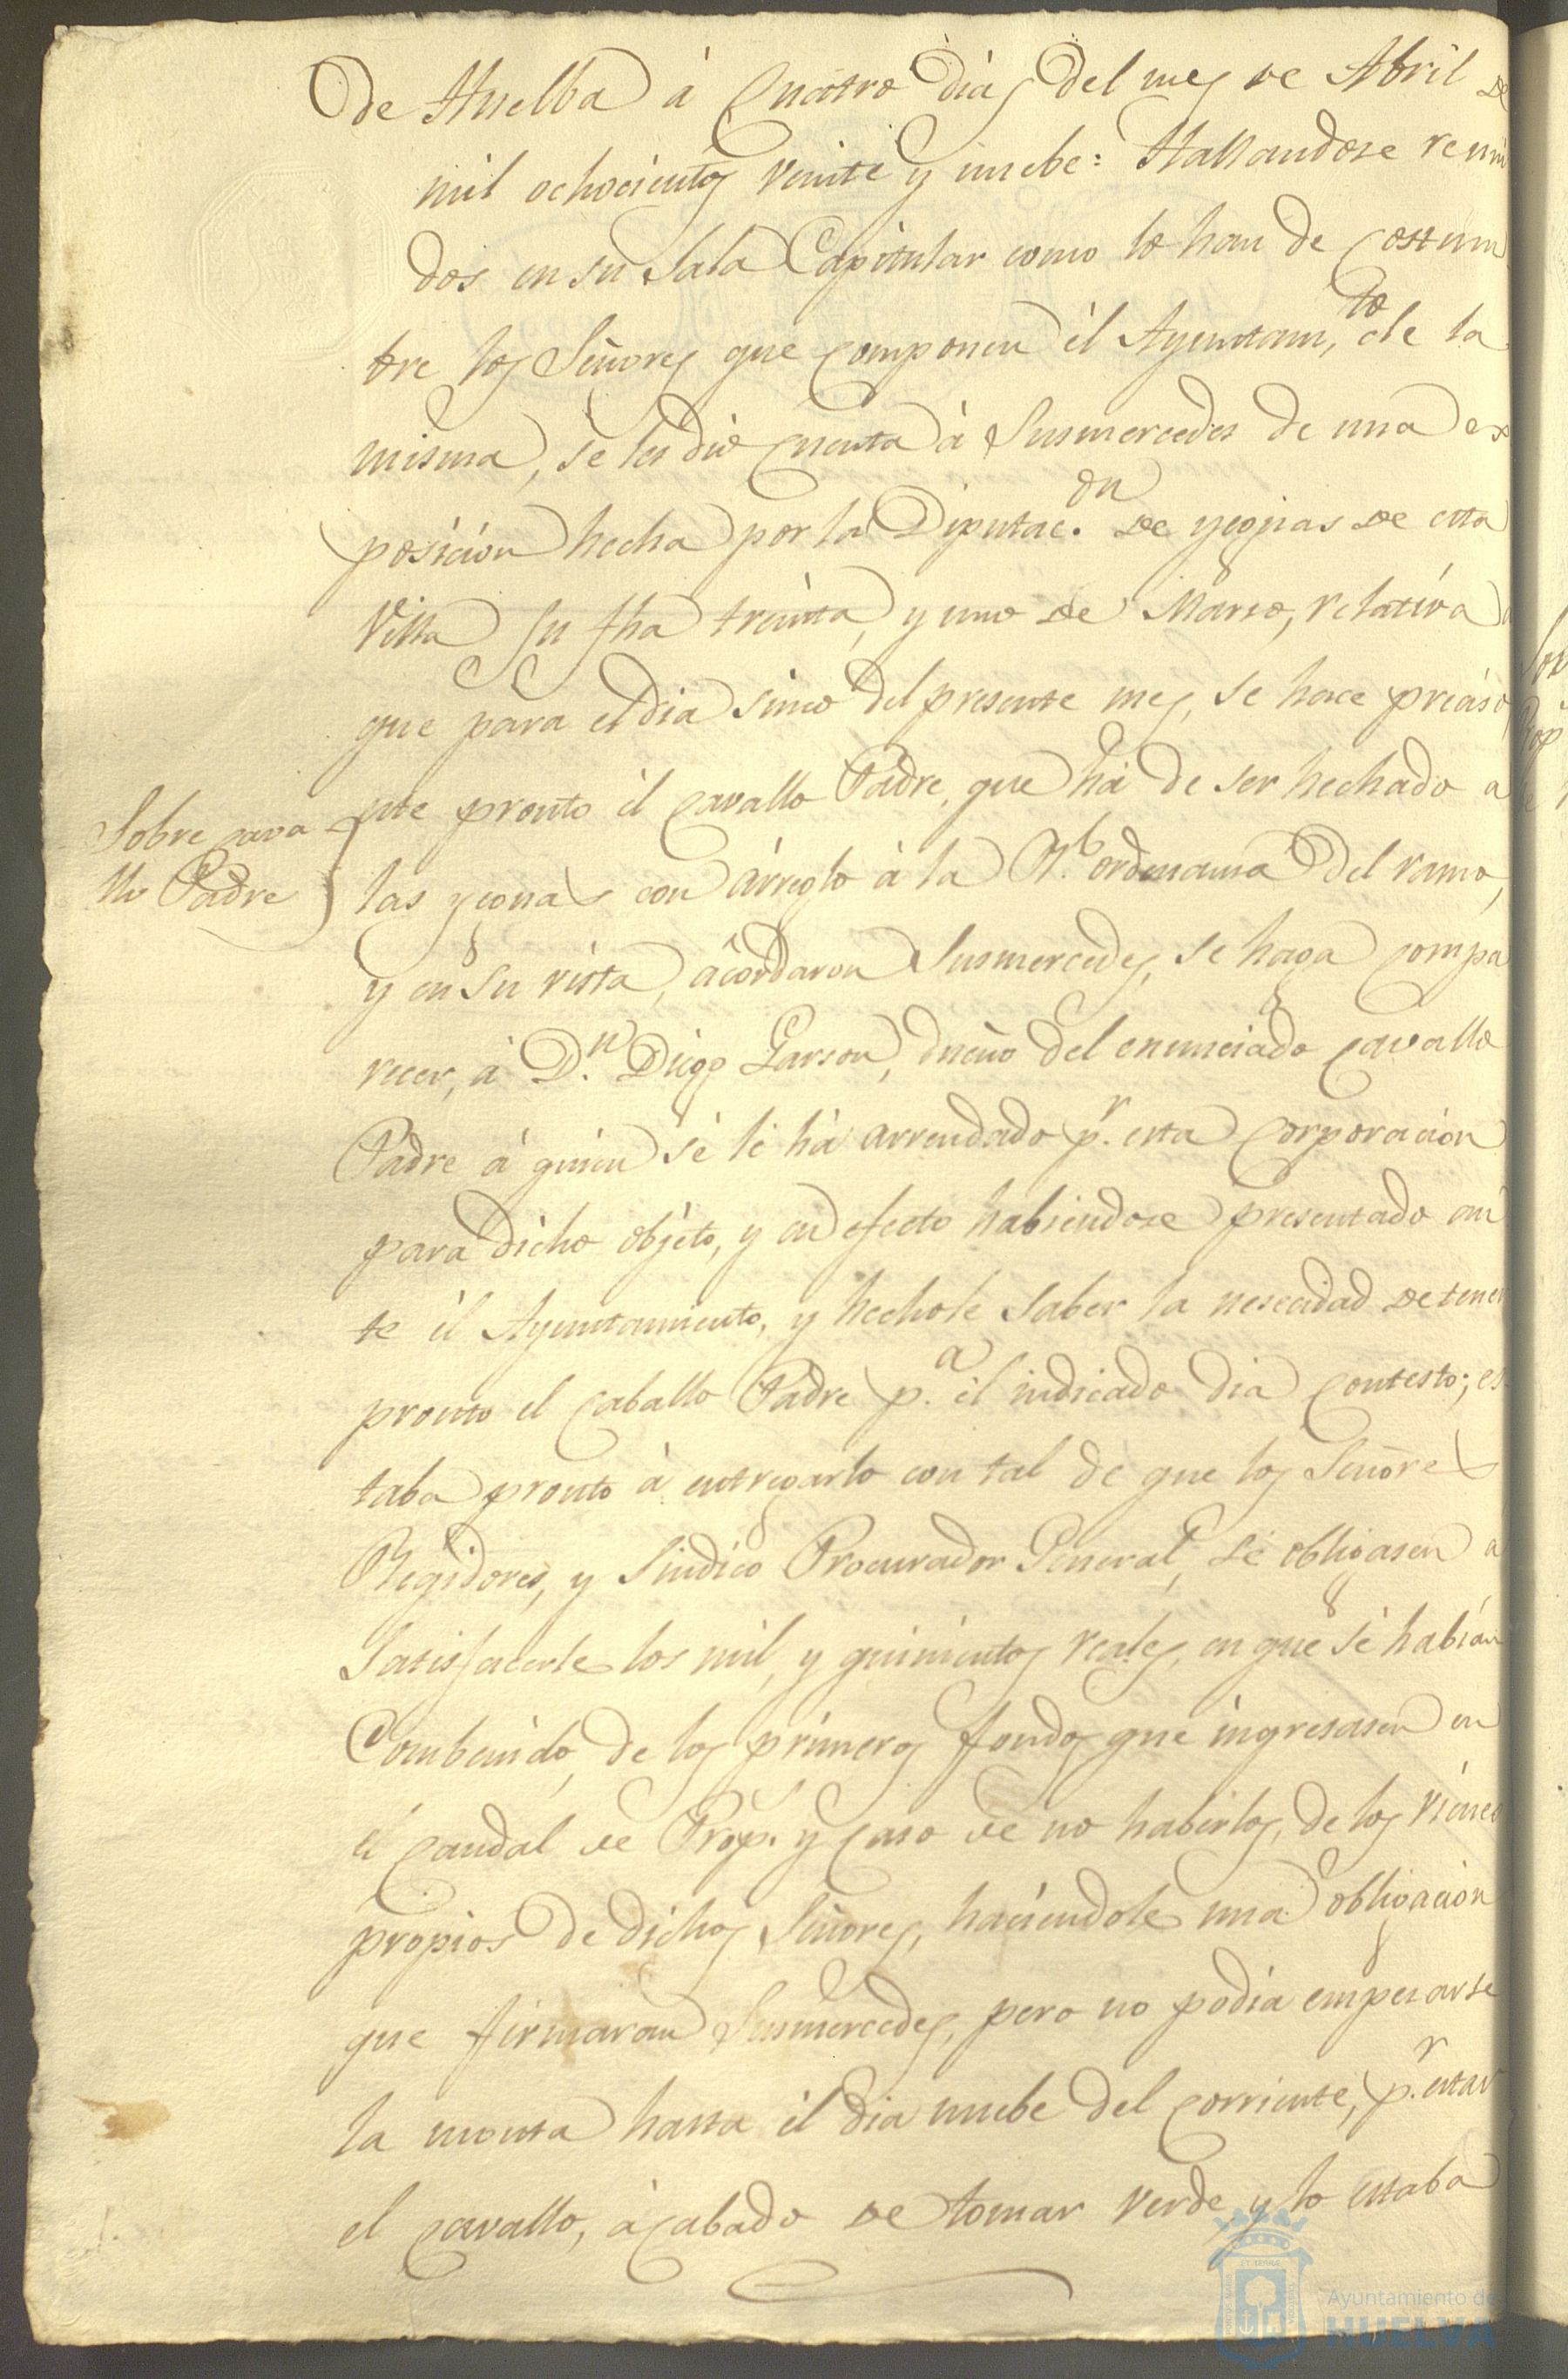 de Huelba à Quatro dias del mes de Abril de
mil ochocientos veinte y nuebe: Hallandose reuni
dos en su Sala Capitular como lo han de costum
bre los Señores que componen èl Ayuntam,to de la
misma, se les diò cuenta à Susmercedes de una ex
posicion hecha por la Diputac.on de yeguas de esta
Villa su fha treinta, y uno de Marso, relativa a
que para el dia sinco del presente mes, se hace preciso
Sobre cava
llo Padre
este pronto èl cavallo Padre, que hà de ser hechado a
las yeguas con àrreglo à la Rl. ordenansa del ramo,
y en su vista, àcordaron Susmercedes, se haga compa
recer, à D.n Diego Garson, dueño del enunciado cavallo
Padre à quien sè lè hà arrendado p.r esta corporacion
para dicho objèto, y en efecto habiendose presentado an
te èl Ayuntamiento, y hechole saber la nesecidad de tener
pronto el caballo Padre p.a èl indicado dia contesto; es
taba pronto à entregarlo con tal de que los Señores
Regidores, y Sindico Procurador General, se obligasen a
Satisfacerle los mil, y quinientos reales, en que sè habian
Combenido, de los primeros fondos que ingresasen en
el caudal de Prop.s y caso de no haberlos, de los vienes
propios de dichos Señores, haciendole una obligacion
que firmaran Susmercedes, pero no podia empesarse
la monta hasta èl dia nuebe del corriente, p.r estar
el cavallo, àcabado de tomar verde, y lo estaba
Ayuntamiento de
HUELVA